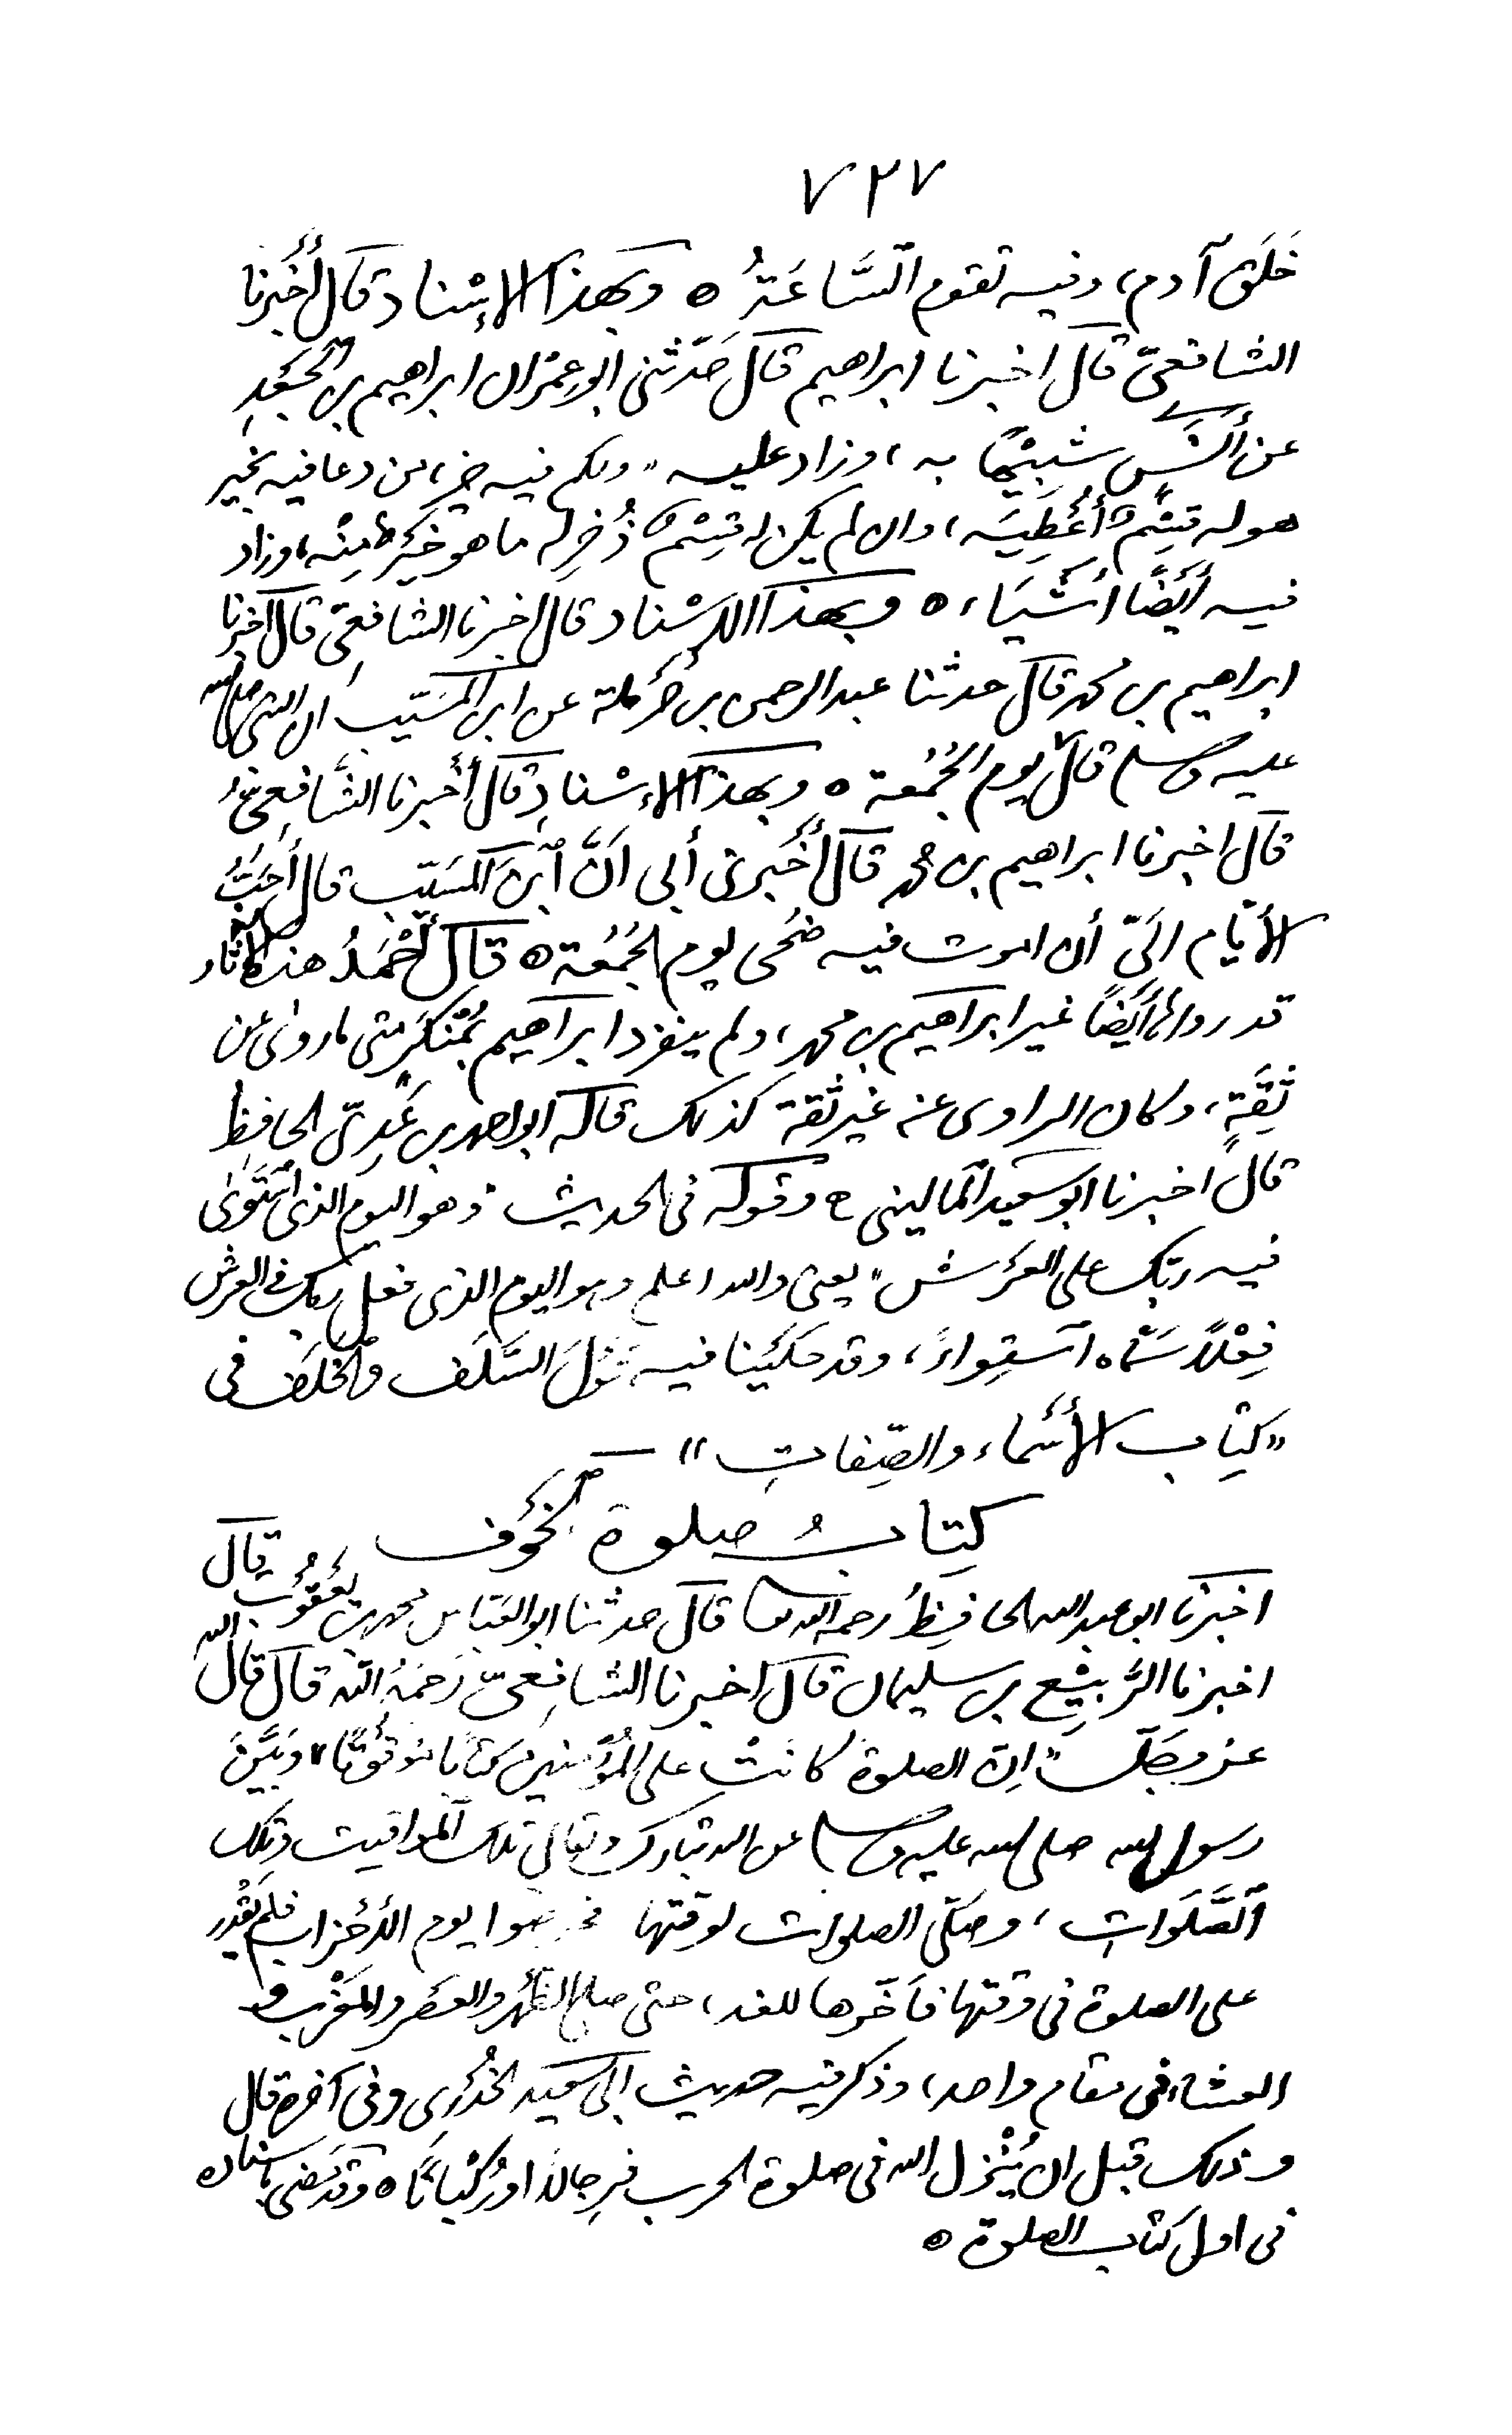 ٧٢٧
خَلَقَ آدم، وفيه تقوم السَّاعَةُ ٥ وبهذا الإسْناد قال أَخْبرنا
الشافعىّ قال اخبرنا ابراهيم قال حَدّثنى ابو عِمْران ابراهيم بن الجَعْدِ
عن أَنَسٍ شبِيْهًا به، وزاد عليه "ولكم فيه خير، من دعا فيه بخير
هو له قِسْمٌ أُعْطِيَه، وان لم يكن له قِسْمٌ ذُخِرله ما هو خَيْرٌ مِنْه"، وزاد
فيه أَيْضًا أَشْيَاء ٥ وبهذا الاِسْناد قال اخبرنا الشافعىّ قال اخبرنا
ابراهيم بن محمد قال حدثنا عبد الرحمن بن حَرْملة عن ابن المسَيّب ان النبى صلى الله
عليه وسلم قال يوم الجُمُعة ٥ وبهذا الاِسْنادِ قال أَخْبرنا الشَّافِعىُّ
قال اخبرنا ابراهيم بن محمد قال أَخْبَرنى أبى اَنَّ ابْنَ المسَيّب قال أَحَبُّ
الأَيّام اِلَىّ أن اموت فيه ضُحى يوم الجُمُعة ٥ قال أَحْمَدُ هذه الآثار
قد رواها أَيْضًا غير ابراهيم بن محمد، ولم ينفرد ابراهيم بمُنْكَرٍ متى ما روى عن
ثِقَةٍ، وكان الراوى عنه غير ثقة كذلك قاله ابو احمد بن عَدِىّ الحافظ
قال اخبرنا ابو سعيد المالينى ٥ وقوله فى الحديث "وهو اليوم الذى اسْتَوٰى
فيه ربّك على العَرْش" يعنى والله اعلم وهو اليوم الذى فعل ربك فى العرش
فِعْلًا سَمّاه استِواءً، وقد حكَيْنا فيه قَوْلَ السَّلَف والخَلَف فى
"كِتاب الأَسْماء والصِّفاتِ"
كِتابُ صلوة الخَوْف
اخبَرنا ابو عبد الله الحافِظُ رحمه الله تعا قال حدثنا ابو العَبّاس محمد بن يَعْقُوْبَ قال
اخبرنا الرَّبِيْع بن سليمان قال اخبرنا الشافِعىّ رَحمَهُ اللّه قال قال الله
عز وجَلّ "اِنّ الصلوة كانَتْ على المُؤْمنين كِتابًا مَوْقُوْتًا" وبَيَّنَ
رسول الله صلى الله عليه وسلم عن الله تبارك وتعالى تلك المواقيت وتلك
الصَّلَواتِ، وصَلّى الصلوات لوقتها فحوصروا يوم الاَحْزاب فلم يَقْدِر
على الصلوة فى وقتها فاَخّرها للغد، حتى صلى الظُّهْر والعَصْر والمَغْرب و
العشاء فى مقام واحد، وذكر فيه حديث ابى سَعِيْد الخُدْرى وفى آخره قال
وذلك قبل ان يُنْزِل الله فى صلوة الحرب فرِجالًا او رُكْبانًا ٥ وقد مَضى باسناده
فى اول كتاب الصلوة ٥